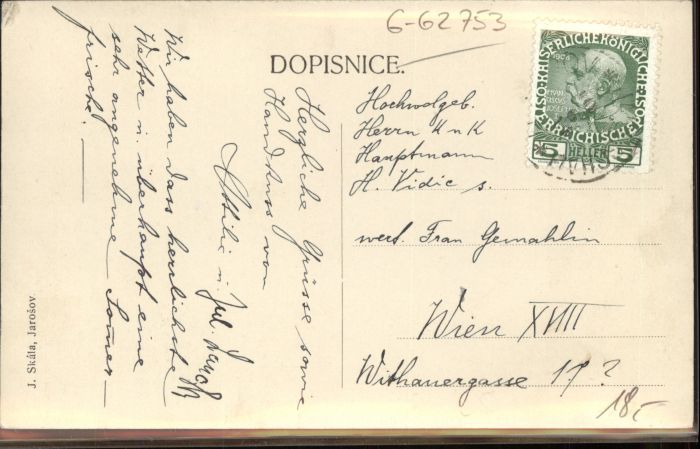 6-62753
DOPISNICE.
Herzliche Grüsse sowie
Handkuss von
Ottilie u. Jul.
Wir haben dass herrlichste
Wetter u. überhaupt eine
sehr angenehme Somer-
frische!
Hochwolgeb.
Herrn K u K
Hauptmann
H. Vidic s.
wert. Frau Gemahlin
Wien XVIII
Withauergasse 17 ?
18.-
KAISERLICHE KÖNIGLICHE ÖSTERREICHISCHE POST
1908
FRANZ JOSEF I
5 HELLER 5
J. Skála, Jarošov.